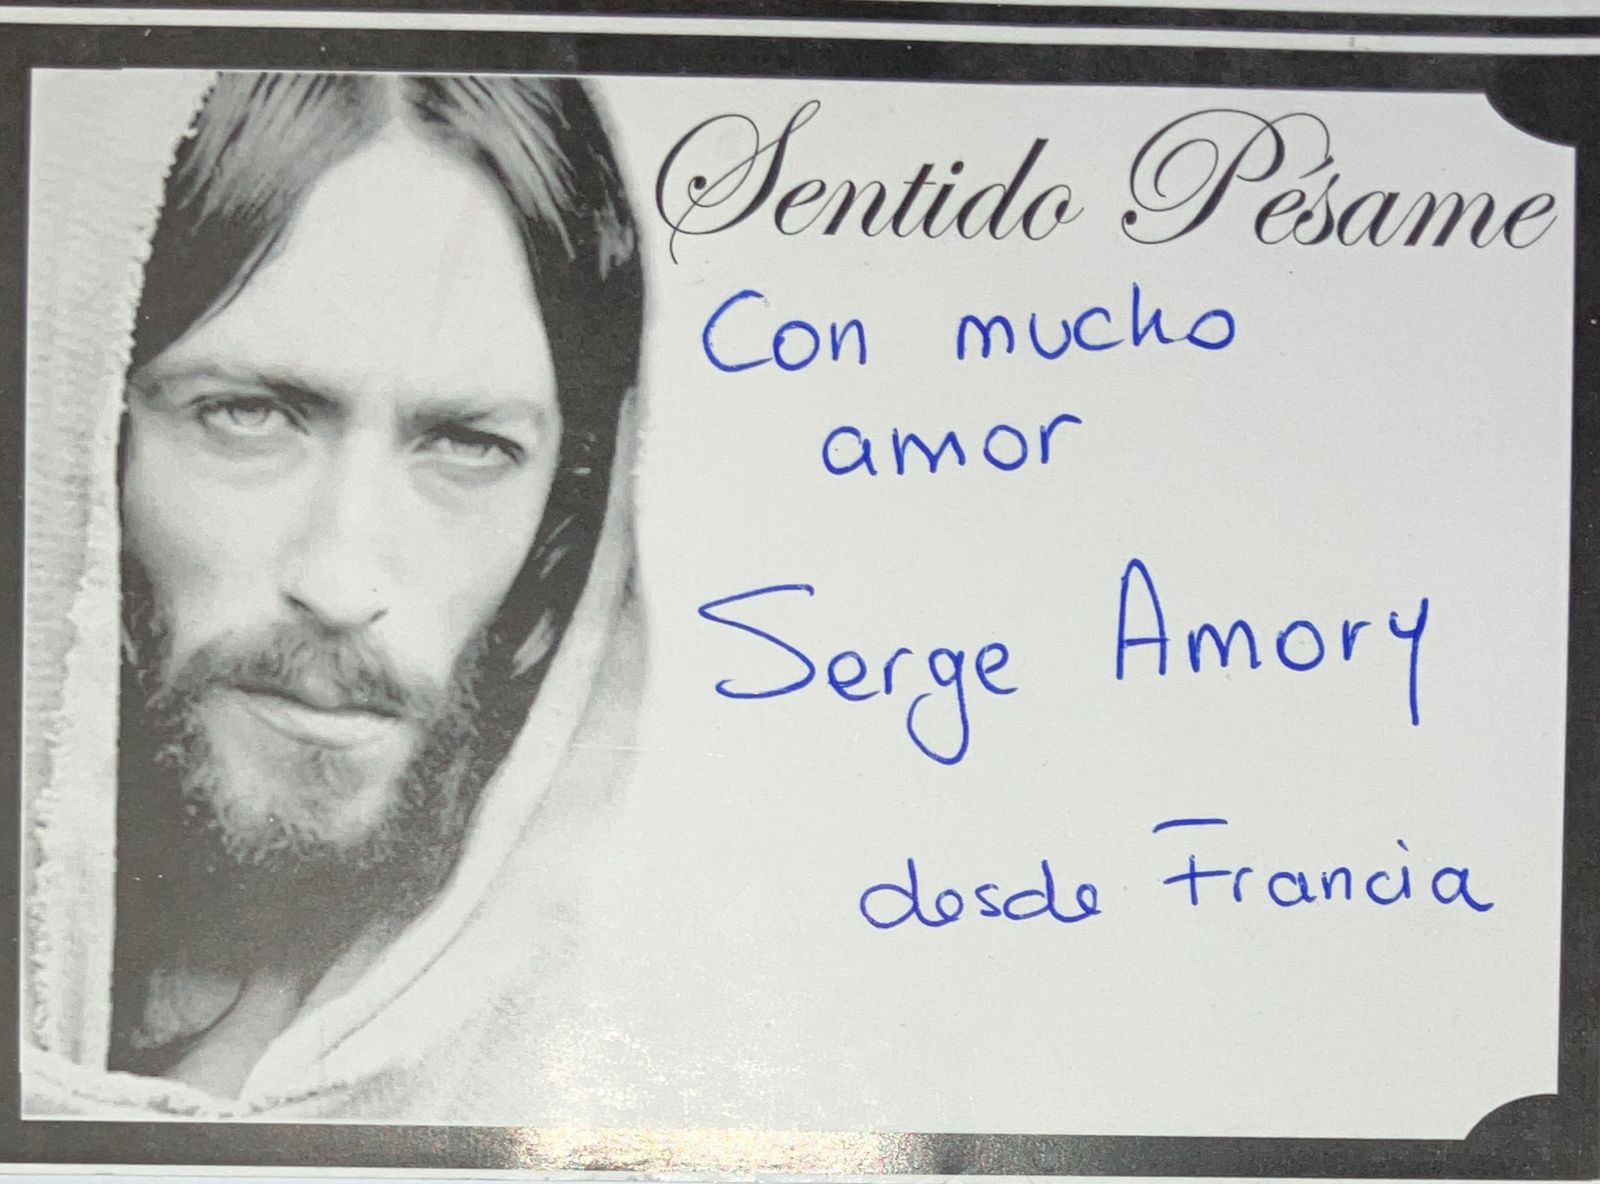 Sentido Pésame
Con mucho
amor
Serge Amory
desde Francia